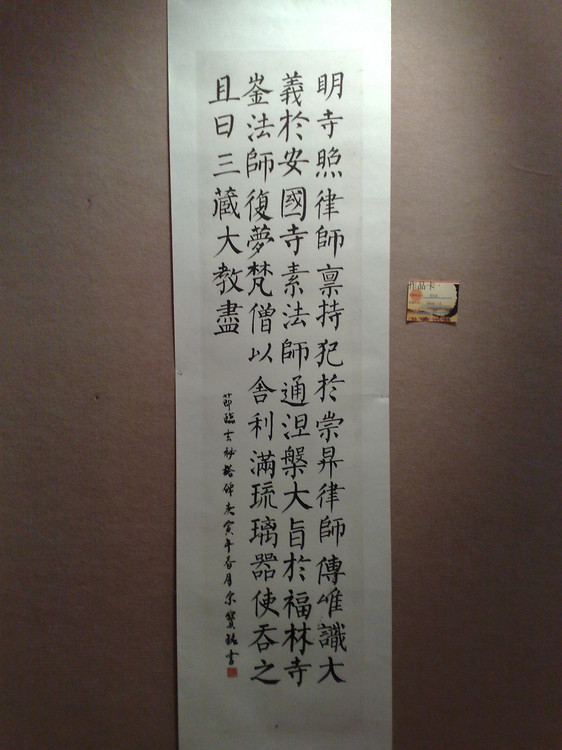 明寺照律師禀持犯於崇昇律師傳唯識大
義於安國寺素法師通涅槃大旨於福林寺
崟法師復夢梵僧以舍利滿琉璃器使吞之
且曰三藏大教盡
節臨玄秘塔碑庚寅年春月書
作品卡